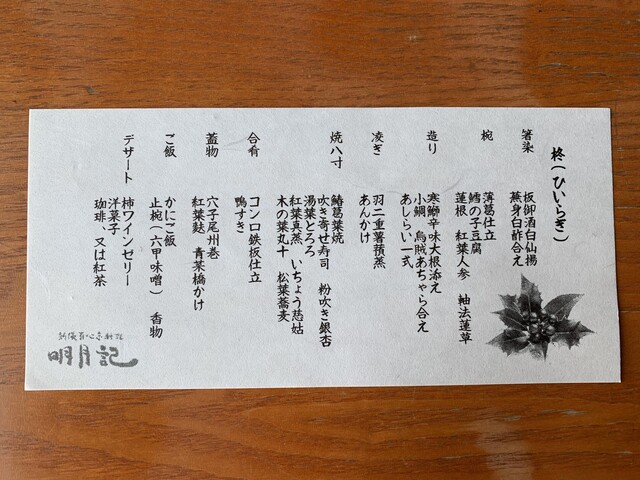 柊(ひいらぎ)
箸染
板御酒白仙揚
蕪身白酢合え
椀
薄葛仕立
鱈の子豆腐
蓮根 紅葉人参 軸法蓮草
造り
寒鰤辛味大根添え
小鯛、烏賊あちゃら合え
あしらい一式
凌ぎ
羽二重薯蕷蒸
あんかけ
焼八寸
鰆葛葉焼
吹き寄せ寿司 粉吹き銀杏
湯葉とろろ
紅葉真蒸 いちょう慈姑
木の葉丸十 松葉蕎麦
合肴
コンロ鉄板仕立
鴨すき
蓋物
穴子尾州巻
紅葉麩 青菜橋かけ
ご飯
かにご飯
止椀(六甲味噌) 香物
デザート
柿ワインゼリー
洋菓子
珈琲、又は紅茶
明月記